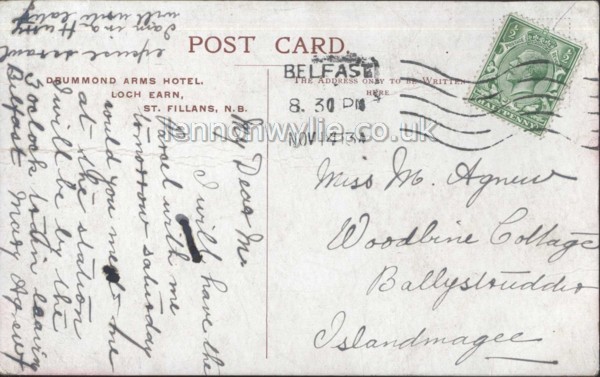 POST CARD.
DRUMMOND ARMS HOTEL,
LOCH EARN,
ST. FILLANS, N.B.
THE ADDRESS ONLY TO BE WRITTEN
HERE
BELFAST
8.30 PM
NOV 14 13
HALF PENNY
jennonwylie.co.uk
Miss M. Agnew
Woodbine Cottage
Ballystrudder
Islandmagee
My Dear Me
I will have the
parcel with me
tomorrow saturday
could you meet me
at the station
I will be by the
3 oclock train leaving
Belfast Mary Agnew
I am in a Hurry
will write later